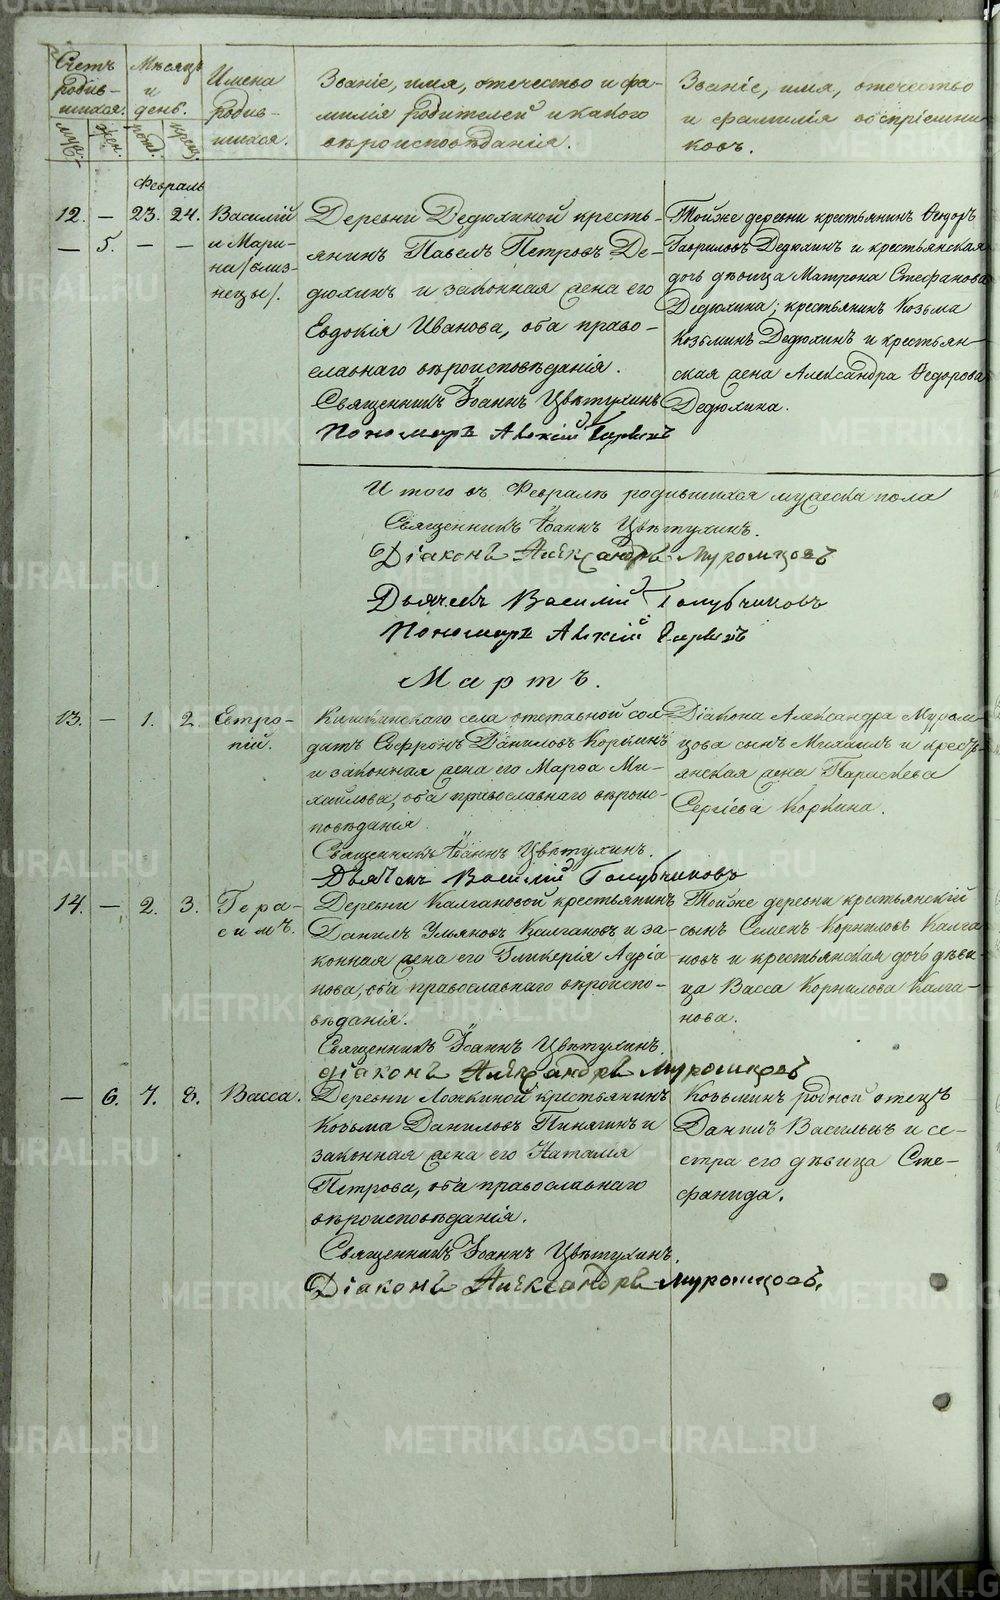 Счетъ родив-шихся.
муж. жен.
Мѣсяцъ и день.
рожд. крещ.
Имена родив-шихся.
Званіе, имя, отечество и фа-
милія родителей и какого
вѣроисповѣданія.
Званіе, имя, отечество
и фамилія воспріемни-
ковъ.
Февраль
12. — 23. 24. Василій
— 5. — — и Мари-
на /близ-
нецы/.
Деревни Дедюхиной кресть-
янинъ Павелъ Петровъ Де-
дюхинъ и законная жена его
Евдокія Иванова, оба право-
славнаго вѣроисповѣданія.
Священникъ Іоаннъ Цвѣтухинъ
Пономарь
Тойже деревни крестьянинъ Ѳедоръ
Гавриловъ Дедюхинъ и крестьянская
дочь дѣвица Матрона Стефанова
Дедюхина; крестьянинъ Козьма
Козьминъ Дедюхинъ и крестьян-
ская жена Александра Ѳедорова
Дедюхина.
Итого въ Февралѣ родившихся мужеска пола
Священникъ Іоаннъ Цвѣтухинъ.
Діаконъ Александръ Муромцовъ
Дьячекъ Василій Голубчиковъ
Пономарь
Мартъ.
13. — 1. 2. Евтро-
пій.
Кишкинскаго села отставной сол-
датъ Софронъ Даниловъ Коркинъ
и законная жена его Марѳа Ми-
хайлова, оба православнаго вѣроис-
повѣданія
Священникъ Іоаннъ Цвѣтухинъ.
Дьячекъ Василій Голубчиковъ
Діакона Александра Муром-
цова сынъ Михаилъ и кресть-
янская жена Параскева
Сергіева Коркина.
14. — 2. 3. Гера-
симъ.
Деревни Калгановой крестьянинъ
Данилъ Ульяновъ Калгановъ и за-
конная жена его Гликерія Адріа-
нова, оба православнаго вѣроиспо-
вѣданія.
Священникъ Іоаннъ Цвѣтухинъ
Діаконъ Александръ Муромцовъ
Тойже деревни крестьянскій
сынъ Семенъ Корниловъ Калга-
новъ и крестьянская дочь дѣви-
ца Васса Корнилова Калга-
нова.
— 6. 7. 8. Васса.
Деревни Ложкиной крестьянинъ
Козьма Даниловъ Пинягинъ и
законная жена его Наталія
Петрова, оба православнаго
вѣроисповѣданія.
Священникъ Іоаннъ Цвѣтухинъ.
Діаконъ Александръ Муромцовъ.
Козьминъ родной отецъ
Данилъ Васильевъ и се-
стра его дѣвица Сте-
фанида.
METRIKI.GASO-URAL.RU